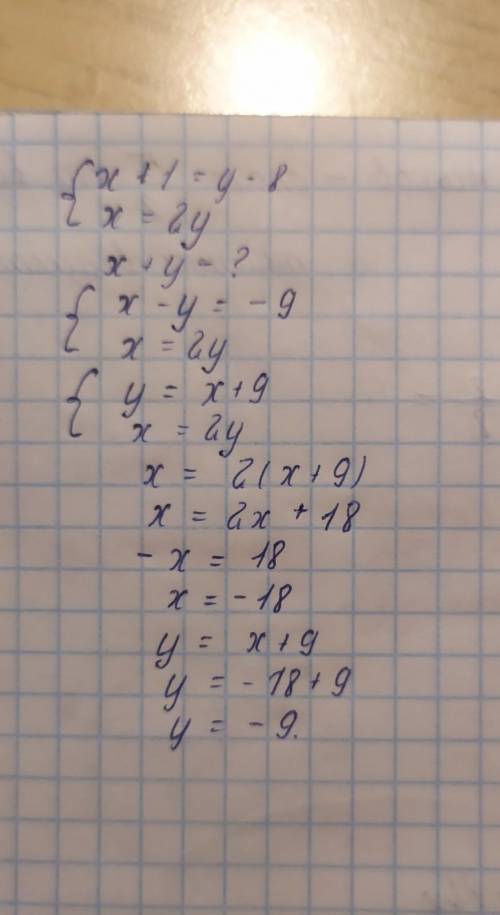 { x + 1 = y - 8
x = 2y
x + y - ?
{ x - y = - 9
x = 2y
{ y = x + 9
x = 2y
x = 2(x + 9)
x = 2x + 18
- x = 18
x = - 18
y = x + 9
y = - 18 + 9
y = - 9.